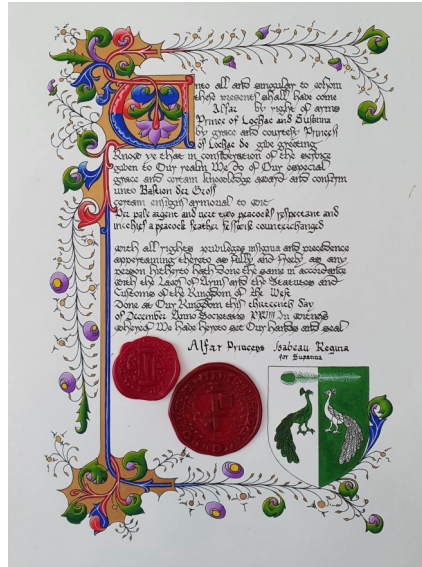 Unto all and singular to whom
these presents shall have come
Alfar by right of arms
Prince of Lochac and Susanna
by grace and courtesy Princess
of Lochac do give greeting
Know ye that in consideration of the service
given to Our realm We do of Our especial
grace and certain knowledge award and confirm
unto Bastion der Gross
certain ensigns armorial to wit
Per pale argent and vert two peacocks respectant and
in chief a peacock feather fesswise counterchanged
with all rights privileges insignia and precedence
appertaining thereto as fully and freely as any
person hitherto hath done the same in accordance
with the Laws of Arms and the Statutes and
Customs of the Kingdom of the West
Done at Our Kingdom this thirteenth day
of December Anno Societatis In witness
whereof We have hereto set Our hands and seal
Alfar Princeps Isabeau Regina
for Susanna